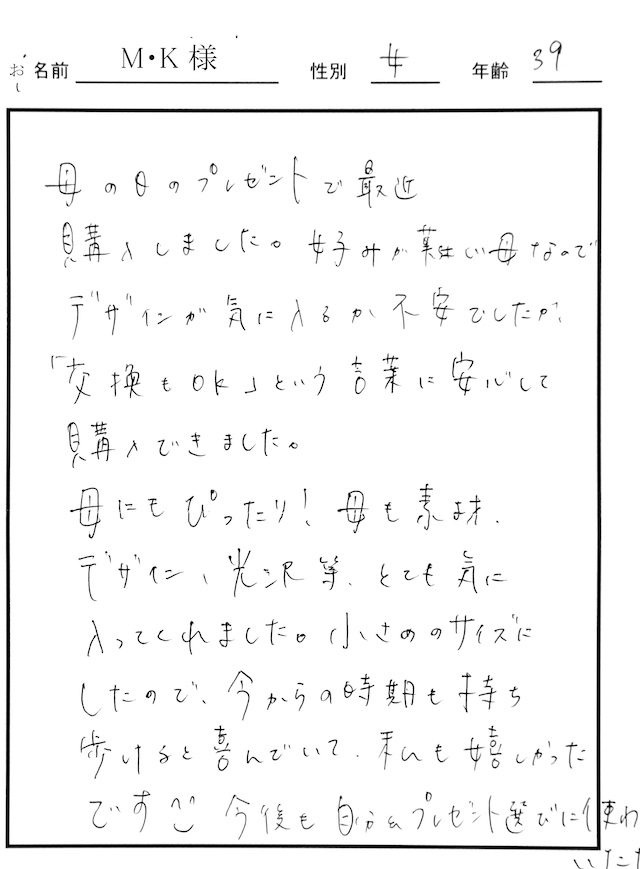 お名前 M・K様 性別 女 年齢 39
母の日のプレゼントで最近
購入しました。好みが難しい母なので
デザインが気に入るか不安でしたが、
「交換もOK」という言葉に安心して
購入できました。
母にもぴったり!母も素材、
デザイン、光沢等、とても気に
入ってくれました。小さめのサイズに
したので、今からの時期も持ち
歩けると喜んでいて、私も嬉しかった
です 今後も自分のプレゼント選びに使わ
いただ